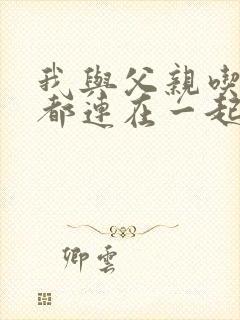 我與父親喫
都連在一起
卿雲